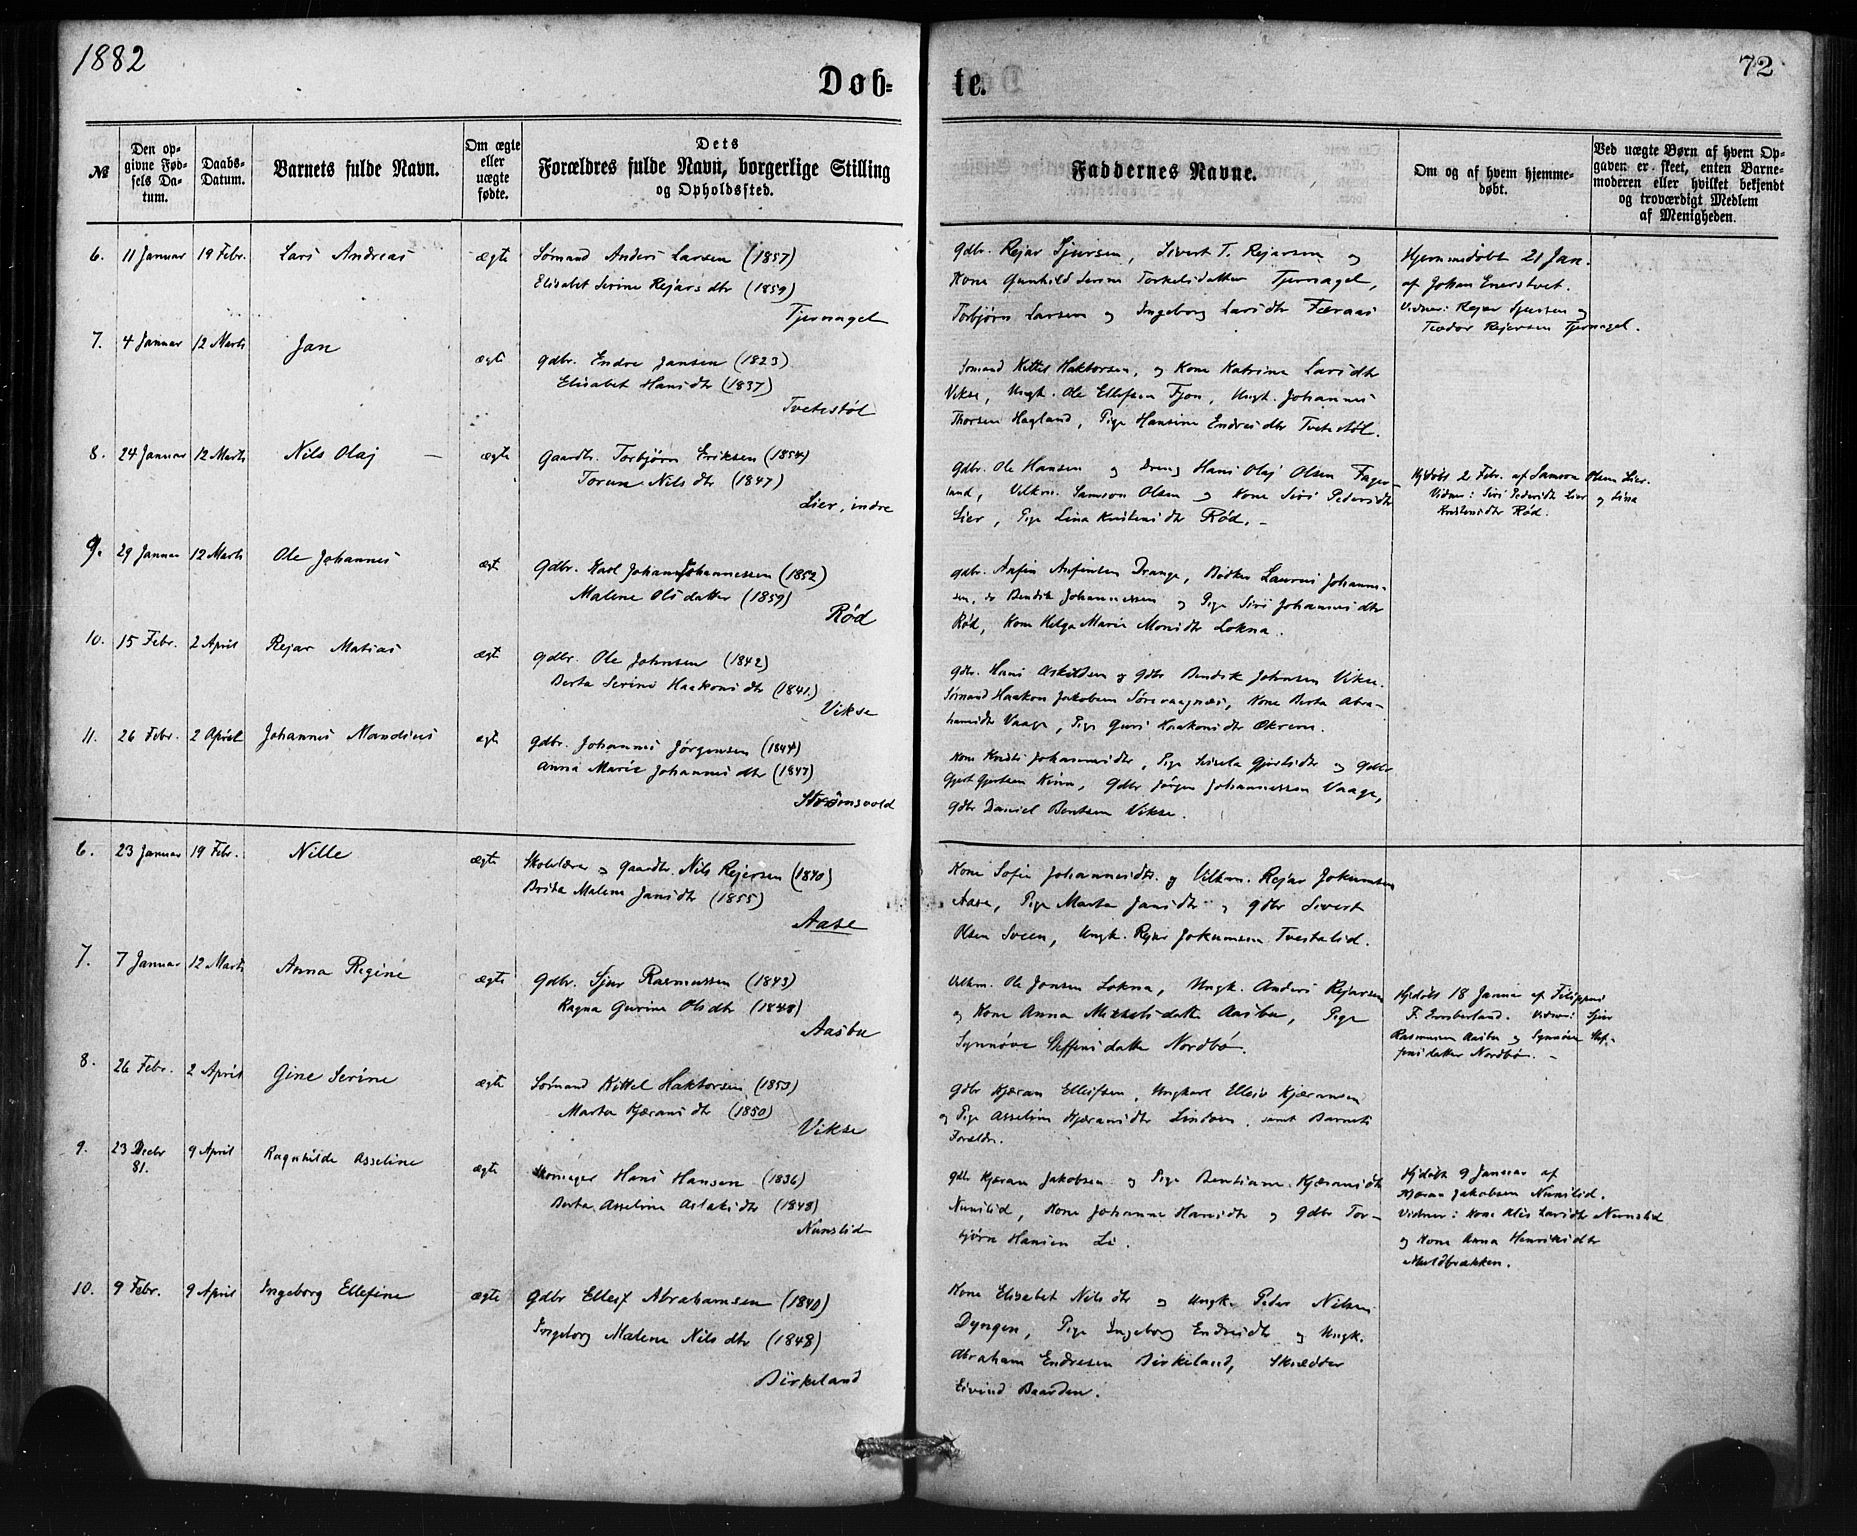 1882
72
Døb-
te.
№
Den op-
givne Fød-
sels Da-
tum.
Daabs-
Datum.
Barnets fulde Navn.
Om ægte
eller
uægte
fødte.
Dets
Forældres fulde Navn, borgerlige Stilling
og Opholdssted.
Faddernes Navne.
Om og af hvem hjemme-
døbt.
Ved uægte Børn af hvem Op-
gaven er skeet, enten Barne-
moderen eller hvilket bekjendt
og troværdigt Medlem
af Menigheden.
6. 11 Januar 19 Febr. Lars Andreas ægte Sømand Anders Larsen (1857)
Elisabet Serine Rejarsdtr (1859)
Tjernagel
Gdbr. Rejar Sjursen, Sivert T. Rejarsen og
Kone Gunhild Serine Torkelsdatter Tjernagel,
Torbjørn Larsen og Ingeborg Larsdtr Færaas
Hjemmedøbt 21 Jan.
af Johan Enerstvet.
Vidner: Rejar Sjursen og
Teodor Rejersen Tjernagel.
7. 4 Januar 12 Marts Jan ægte Gdbr. Endre Jansen (1823)
Elisabet Hansdtr (1837)
Tveitestøl
Sømand Kittel Haktorsen, og Kone Katrine Larsdtr
Vikse, Ungk. Ole Ellefsen Fjon, Ungk. Johannes
Thorsen Hagland, Pige Hansine Endresdtr Tveitestøl.
8. 24 Januar 12 Marts Nils Olaj — ægte Gaardbr. Torbjørn Eriksen (1854)
Torine Nilsdtr (1847)
Lier, indre
Gdbr. Ole Hansen og Dreng Hans Olaj Olsen Fager-
land, Velkm. Samson Olsen og Kone Siri Pedersdtr
Lier, Pige Lina Kristensdtr Rød. –
Hjdøbt 2 Febr. af Samson Olsen Lier.
Vidner: Siri Pedersdtr Lier og Lina
Kristensdtr Rød.
9. 29 Januar 12 Marts Ole Johannes ægte Gdbr. Karl Johan Johannessen (1852)
Malene Olsdatter (1859)
Rød
Gdbr. Anfin Anfinsen Drange, Bødker Laurits Johannes-
sen, Bendik Johannessen og Pige Siri Johannesdtr
Rød, Kone Helga Marie Monsdtr Lokna.
10. 15 Febr. 2 April Rejar Matias ægte Gdbr. Ole Johnsen (1842)
Berta Serine Haakonsdtr (1841.)
Vikse
Gdbr. Hans Askildsen og Gdbr Bendik Johnsen Vikse.
Sømand Haakon Jakobsen Sørevaagnæs, Kone Berta Abra-
hamsdtr Vaage, Pige Guri Haakonsdtr Økrene.
11. 26 Febr. 2 April Johannes Mandius ægte Gdbr. Johannes Jørgensen (1844)
Anna Marie Johannesdtr (1847)
Strømsvold
Kone Kristi Johannesdtr, Pige Sissela Gjertsdtr og Gdbr
Gjert Gjertsen Kinn, Gdbr Jørgen Johannessen Vaage,
Gdbr Daniel Bentsen Vikse.
6. 23 Januar 19 Febr. Nille ægte Skolelærer og Gaardbr. Nils Rejersen (1840)
Brita Malene Jansdtr (1855)
Aase
Kone Sofie Johannesdtr. og Velkm. Rejar Jokumsen
Aase, Pige Marta Jansdtr og Gdbr Sivert
Olsen Sveen, Ungk. Rejar Jokumsen Tveitalid.
7. 7 Januar 12 Marts Anna Regine ægte Gdbr. Sjur Rasmussen (1843)
Ragna Gurine Olsdtr (1848)
Aasbu
Velkm. Ole Jonsen Lokna, Ungk. Anders Rejarsen
og Kone Anna Mikkelsdatter Aasbu, Pige
Synnøve Steffensdatter Nordbø.
Hjdøbt 18 Januar af Filippus
F. Emberland. Vidner: Sjur
Rasmussen Aasbu og Synnøve Stef-
fensdatter Nordbø. –
8. 26 Febr. 2 April Gine Serine ægte Sømand Kittel Haktorsen (1853)
Marta Kjæransdtr (1850)
Vikse
Gdbr Kjæran Elleifsen, Ungkarl Elleiv Kjæransen
og Pige Asseline Kjæransdtr Lindøen, samt Barnets
Forældre.
9. 23 Decbr 9 April Ragnhilde Asseline ægte Skomager Hans Hansen (1836)
81.
Berta Asseline Aslaksdtr (1848)
Nunslid
Gdbr Kjæran Jakobsen og Pige Bentianne Kjæransdtr
Nunslid, Kone Johanne Hansdtr og Gdbr Tor-
bjørn Hansen Li.
Hjdøbt 9 Januar af
Kjæran Jakobsen Nunslid.
Vidner: Kone Larsdtr Nunslid
og Kone Anna Henriksdtr
10. 9 Febr. 9 April Ingeborg Ellefine ægte Gdbr Elleif Abrahamsen (1840)
Ingeborg Malene Nilsdtr (1848)
Birkeland
Kone Elisabet Nilsdtr og Ungk. Peder Nilsen
Dyngen, Pige Ingeborg Endresdtr og Ungk.
Abraham Endresen Birkeland, Skrædder
Eivind Baardsen.